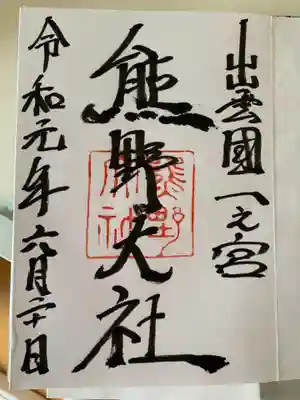 出雲國一之宮
熊野大社
令和元年六月二十日